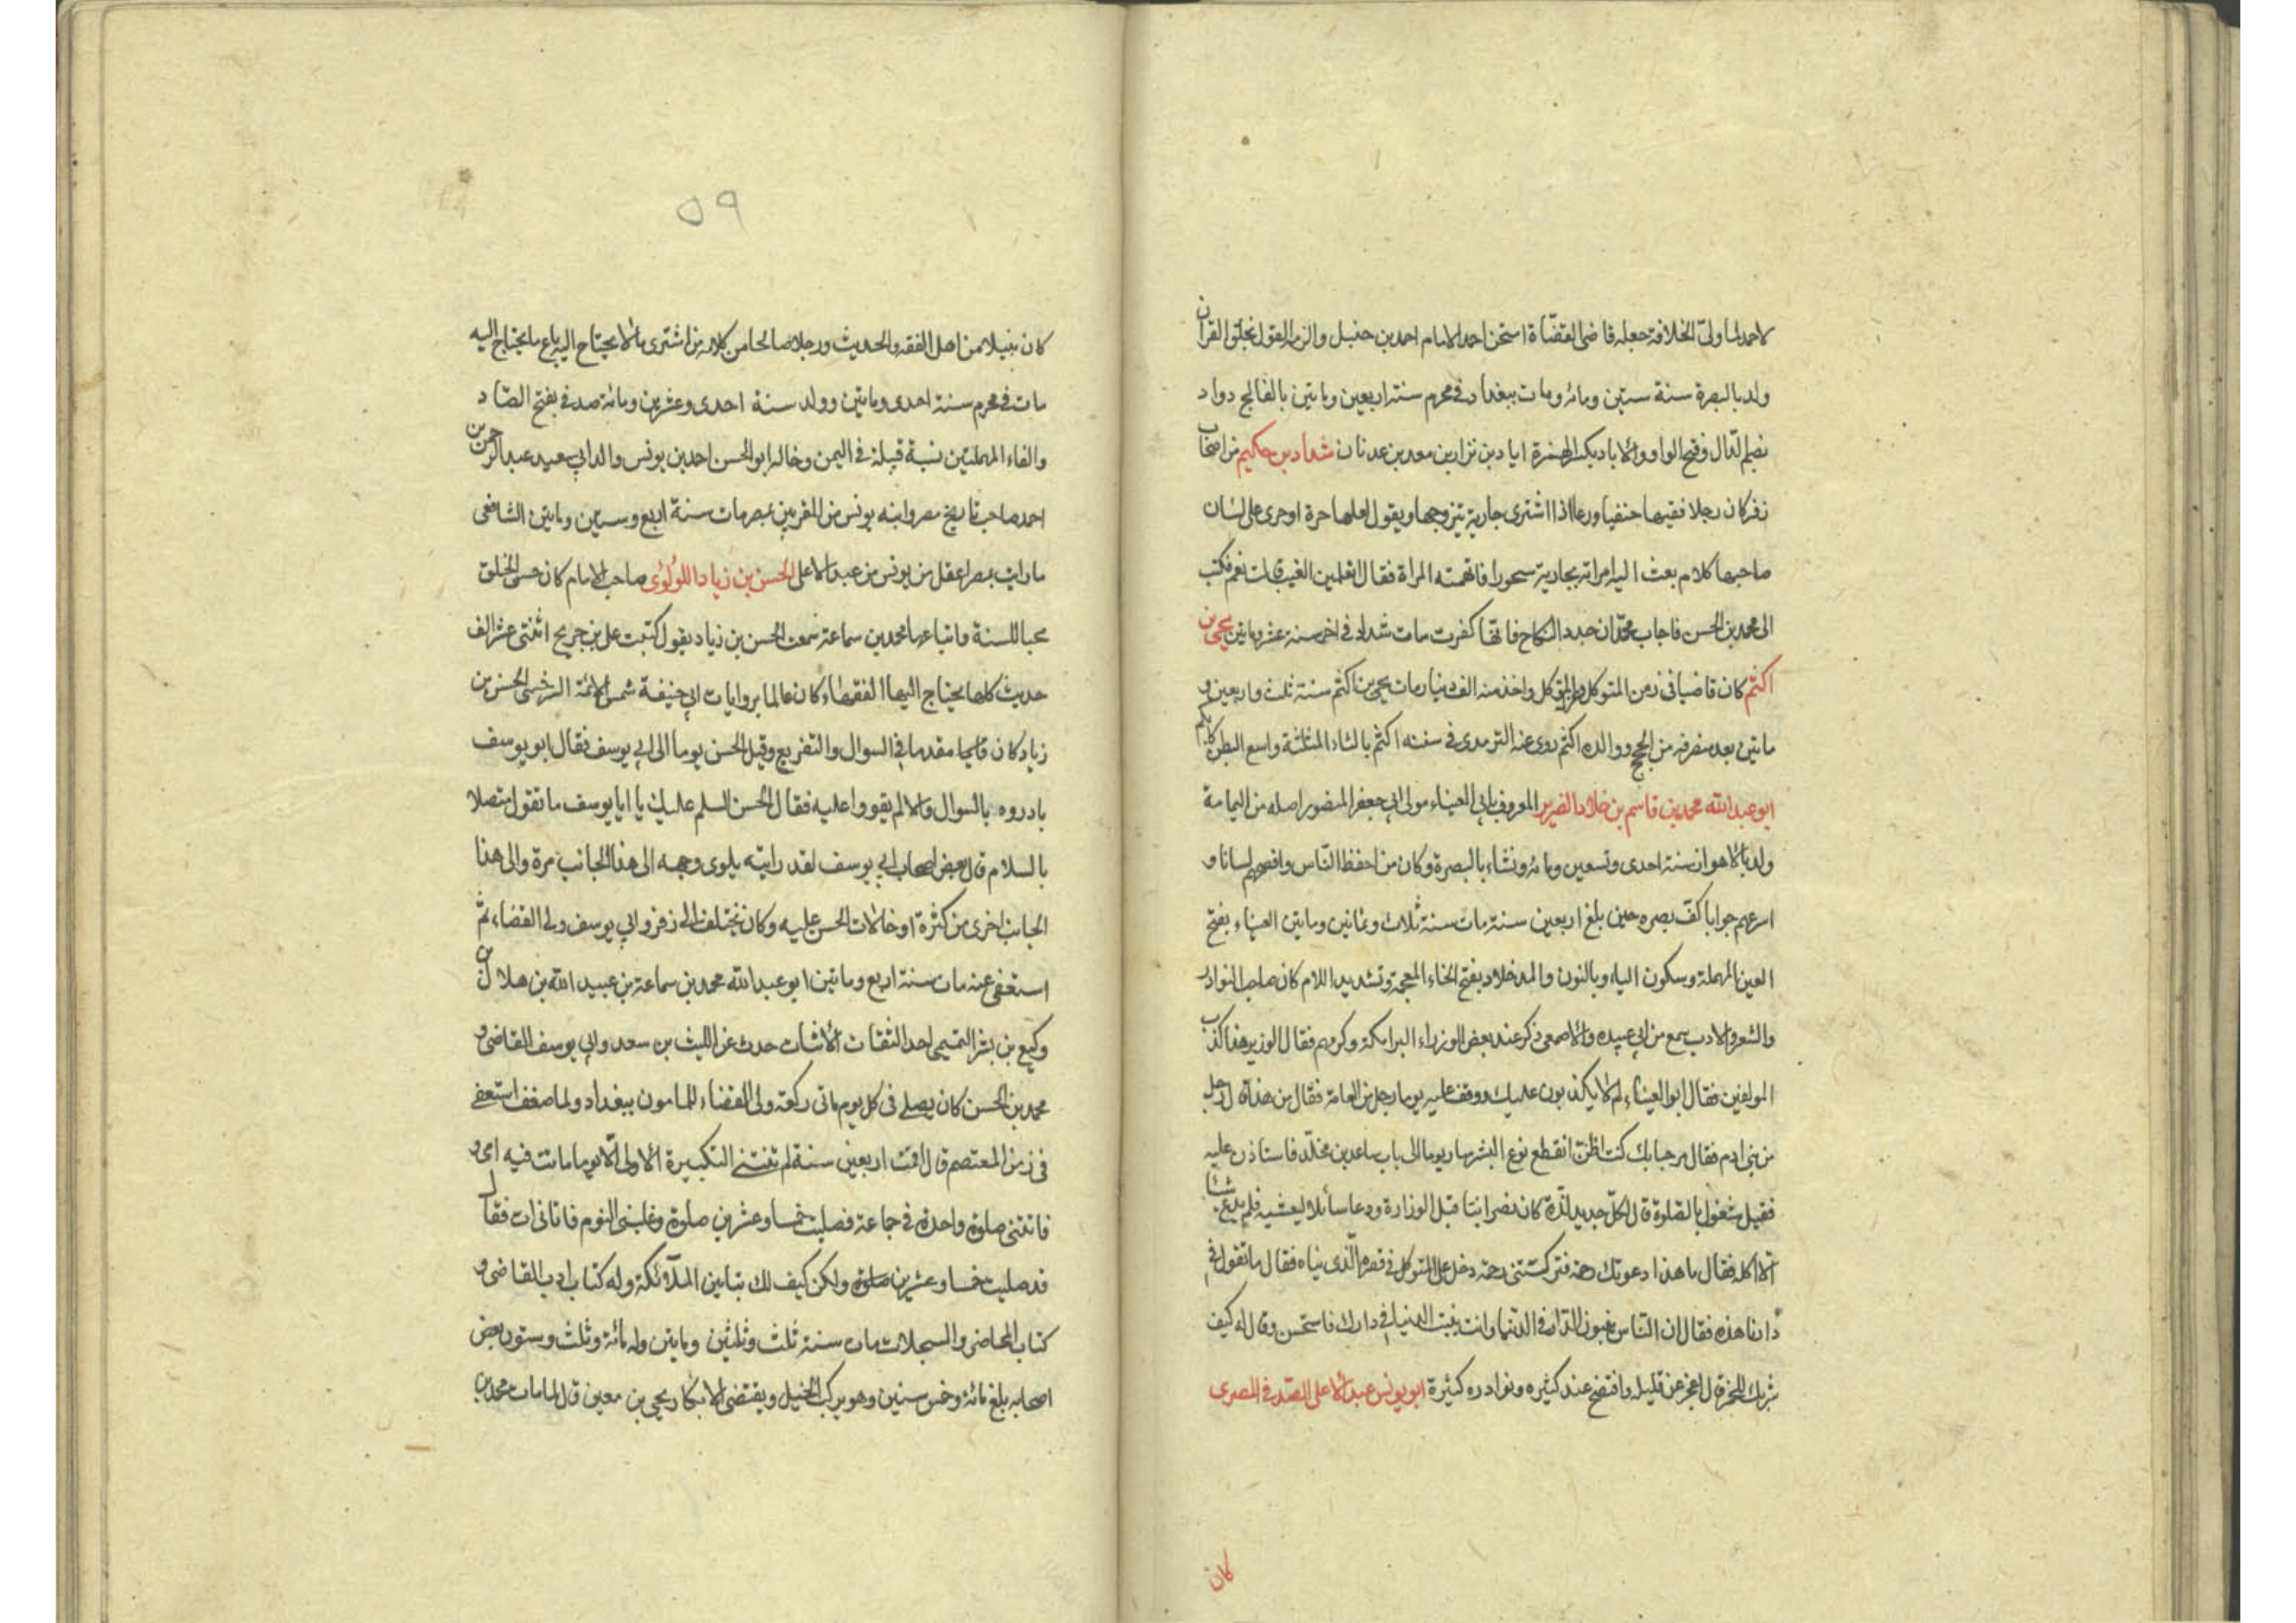 لاحمد لما ولي الخلافة جعله قاضى القضاة امتحن احمد الامام احمد بن حنبل والزمه القول بخلق القران
ولد بالبصرة سنة ستين ومائه ومات ببغداد فى محرم سنة اربعين وماتين بالفالج دواد
بضم الدّال وفتح الواو والايادى بكسر الهمزة اياد بن نزار بن معد بن عدنان شداد بن حكيم من اصحاب
زفر كان رجلا فقيها حنفيا ورعا اذا اشترى جارية يتزوجها ويقول لعلها حرة او جرى على لسان
صاحبها كلام بعث اليه امراته بجارية سحورا فاتهمته المراة فقال اتعلمين الغيب قالت نعم فكتب
الى محمد بن الحسن فاجاب محمّد ان جدد النكاح فانّها كفرت مات شداد فى اخر سنة عشر وماتين يحيى بن
اكثم كان قاضيا فى زمن المتوكل المتوكل واخذ منه الف دينار مات يحيى بن اكثم سنة ثلث واربعين و
ماتين بعد منصرفه من الحج ووالده اكثم روى عنه الترمدى فى سننه اكثم بالثاء المثلثة واسع البطن
ابو عبد الله محمد بن قاسم بن خلاد الضرير المعروف بابى العيناء مولى ابي جعفر المنصور اصله من اليمامة
ولد بالاهواز سنة احدى وتسعين ومائه ونشاء بالبصرة وكان من احفظ النّاس وافصحهم لسانا و
اسرعهم جوابا كفّ بصره حين بلغ اربعين سنة مات سنة ثلاث وثمانين وماتين العيناء بفتح
العين المهملة وسكون الياء وبالنون والمد خلاد بفتح الخاء المعجمة وتشديد اللام كان صاحب النوادر
والشعر والادب سمع من ابي عبيده والاصمعى ذكر عند بعض الوزراء البرامكة وكرمهم فقال الوزير هذا كذب
المولفين فقال ابو العيناء لم لا يكذبون عليك ووقف عليه يوما رجل من العامة فقال من هذا قال رجل
من بنى ادم فقال مرحبا بك كنت اظن انقطع نوع البشر صار يوما الى باب ساعد بن مخلّد فاستاذن عليه
فقيل مشغول بالصّلوة قال لكلّ جديد لذّة كان نصرانيّا قبل الوزارة ودعا سائلا ليعشيه فلم يدع شيئا
الا اكله فقال يا هذا دعوتك رحمة فتركتنى رحمة دخل على المتوكل فى قصره الّذى بناه فقال ما تقول فى
دارنا هذه فقال ان النّاس يبنون الدّار فى الدنيا وانت بنيت الدنيا فى دارك فاستحسن وقال له كيف
شربك للخمر قال اعجز عن قليله وافتضح عند كثيره ونوادره كثيرة ابو يونس عبد الاعلى الصّدفى المصرى
كان
٥٩
كان نبيلا من اهل الفقه والحديث ورجلا صالحا من كلامه من اشترى مالا يحتاج اليه باع ما يحتاج اليه
مات فى محرم سنة احدى وماتين وولد سنة احدى وعشرين ومائه صدفى بفتح الصّاد
والفاء المهملتين نسبة قبيلة فى اليمن وخاله ابو الحسن احمد بن يونس والد ابي سعيد عبد الرحمن بن
احمد صاحب تاريخ مصر وابنه يونس من المقربين بمصر مات سنة اربع وستين وماتين الشافعى
ما رايت بمصر اعقل من يونس من عبد الاعلى الحسن بن زياد اللولوى صاحب الامام كان حسن الخلق
محبا للسنة واتباعها محمد بن سماعة سمعت الحسن بن زياد يقول كتبت على بن جريح اثنتى عشر الف
حديث كلها يحتاج اليها الفقهاء وكان عالما بروايات ابي حنيفة شمس الائمة السرخسى الحسن بن
زياد كان قايما مقدما فى السوال والتفريع وقيل الحسن يوما الى ابي يوسف فقال ابو يوسف
بادروه بالسوال والا لم يقووا عليه فقال الحسن السلم عليك يا ابا يوسف ما تقول متصلا
بالسلام قال بعض اصحاب ابي يوسف لقد رايته يلوى وجهه الى هذا الجانب مرة والى هذا
الجانب اخرى من كثرة ادخالات الحسن عليه وكان يختلف الى زفر وابي يوسف ولى القضاء ثم
استعفى عنه مات سنة اربع وماتين ابو عبد الله محمد بن سماعة بن عبيد الله بن هلال بن
وكيع بن بشر التميمى احد الثقات الاثبات حدث عن الليث بن سعد وابي يوسف القاضى و
محمد بن الحسن كان يصلى فى كل يوم ماتى ركعة ولى القضاء للمامون ببغداد ولما ضعف استعفى
فى زمن المعتصم قال اقمت اربعين سنة لم تفتنى التكبيرة الاولى الّا يوما ماتت فيه امى و
فاتتنى صلوة واحدة فى جماعة فصليت خمسا وعشرين صلوة وغلبنى النوم فاتانى ات فقال
قد صليت خمسا وعشرين صلوة ولكن كيف لك بتامين الملائكة وله كتاب ادب القاضى و
كتاب المحاضر والسجلات مات سنة ثلث وثلثين وماتين وله مائة وثلث وستون بعض
اصحابه بلغ مائة وخمس سنين وهو يركب الخيل ويفتضى الابكار يحيى بن معين قال لما مات محمد بن